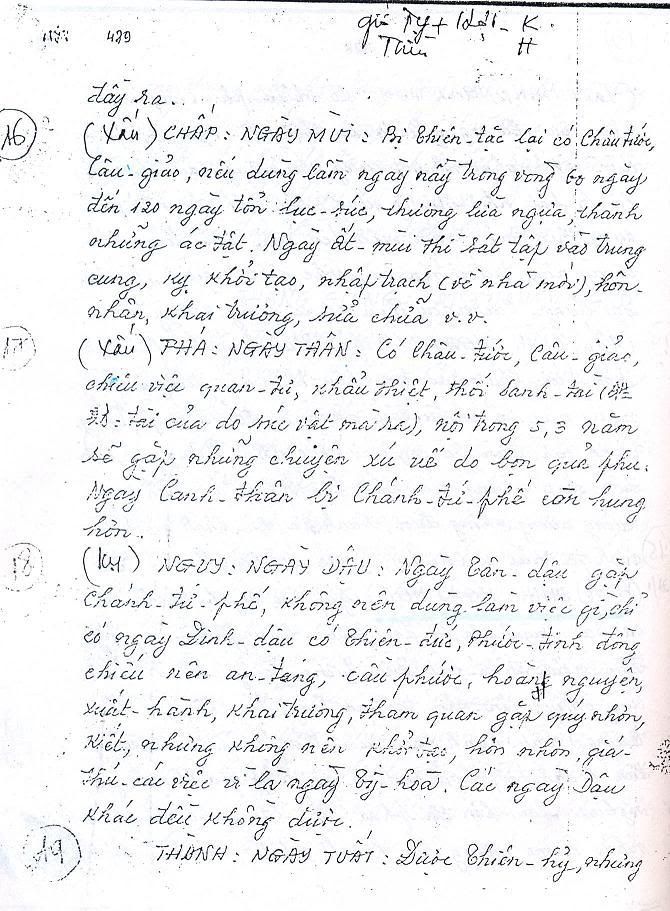 429
giờ Tỵ + Hợi - K.
Thìn H
đây ra.
16
(Xấu) CHẤP: NGÀY MÙI: Bị Thiên-tặc lại có Châu tước,
Câu-giảo, nếu dùng lầm ngày nầy trong vòng 60 ngày
đến 120 ngày tổn lục-súc, thương lừa ngựa, thành
những ác tật. Ngày Ất-mùi thì sát tập vào trung
cung, kỵ khởi tạo, nhập trạch (về nhà mới), hôn-
nhân, khai trương, sửa chữa v.v.
17
(Xấu) PHÁ: NGÀY THÂN: Có Châu-tước, Câu-giảo,
chiếu việc quan-tư, khẩu thiệt, thối sanh-tài (
tài của do súc vật mà ra), nội trong 5, 3 năm
sẽ gặp những chuyện xú uế do bọn quả phụ.
Ngày Canh-thân bị Chánh-tứ-phế còn hung
hơn.
18
(Kỵ) NGUY: NGÀY DẬU: Ngày Tân-dậu gặp
Chánh-tứ-phế, không nên dùng làm việc gì, chỉ
có ngày Đinh-dậu có Thiên-đức, Phước-tinh đồng
chiếu nên an-táng, cầu phước, hoàn nguyện,
xuất-hành, khai trương, tham quan gặp quý nhơn,
kiết, nhưng không nên khởi tạo, hôn nhơn, giá-
thú-các việc vì là ngày Tỷ-hoà. Các ngày Dậu
khác đều không được.
19
THÀNH: NGÀY TUẤT: Được Thiên-hỷ, nhưng